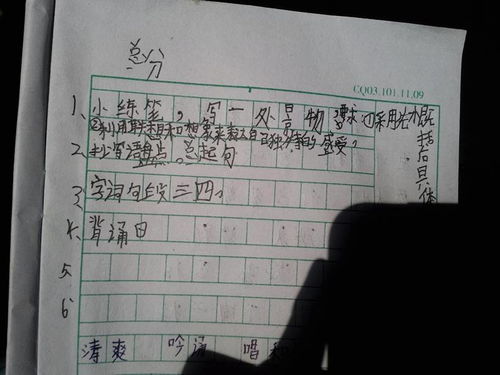 总分
CQ03.101.11.09
1、小练笔，写一处景物 要求①采用先概括后具体
②利用联想和想象来表达自己独特的感受。
2、抄背语盘点 总起句
3、字词句段三四。
4、背诵日
5、
6、
清爽 吟诵 唱和